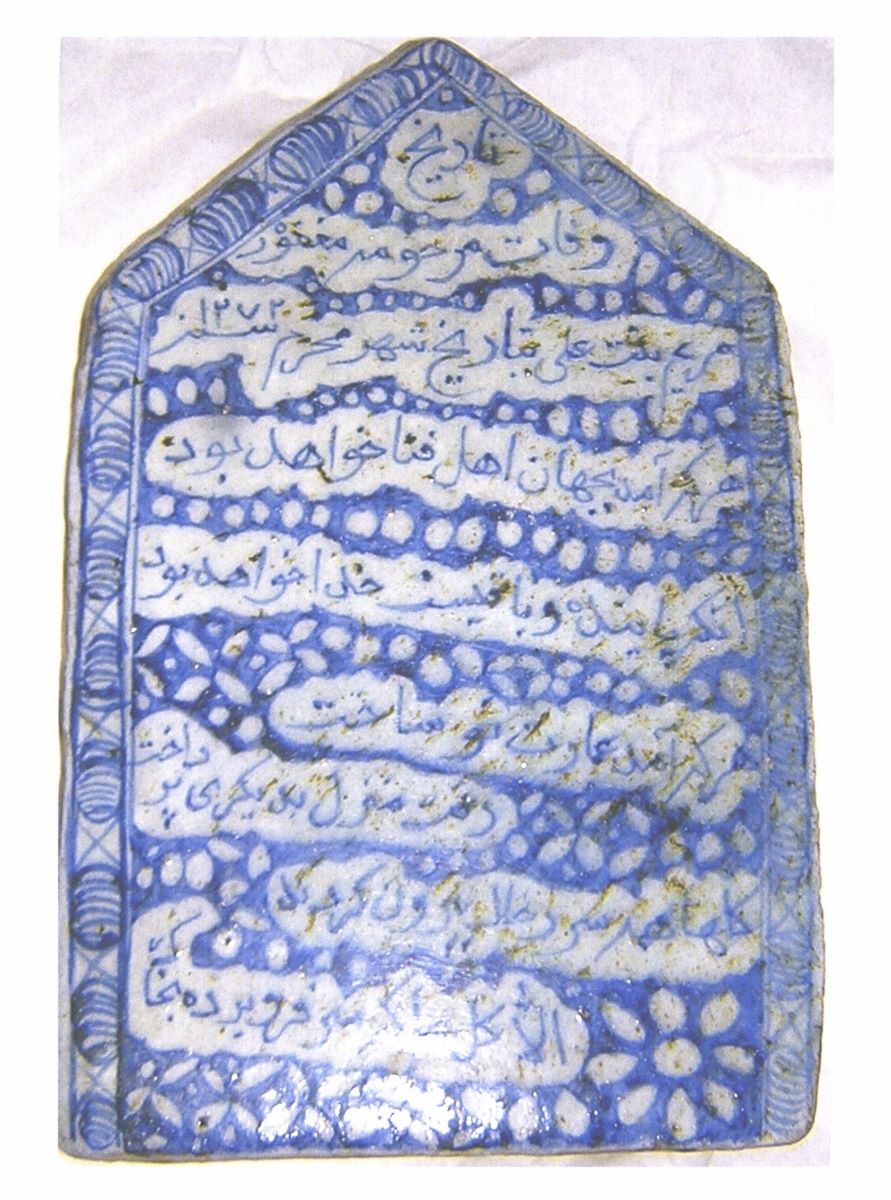 تاریخ
وفات مرحومه مغفوره
مریم بنت علی بتاریخ شهر محرم سنه ۱۲۷۲
هرکه آمد بجهان اهل فنا خواهد بود
آنکه پاینده و باقیست خدا خواهد بود
هرکه آمد عمارت نو ساخت
رفت منزل بدیگری پرداخت
سر فرو برده بخاک